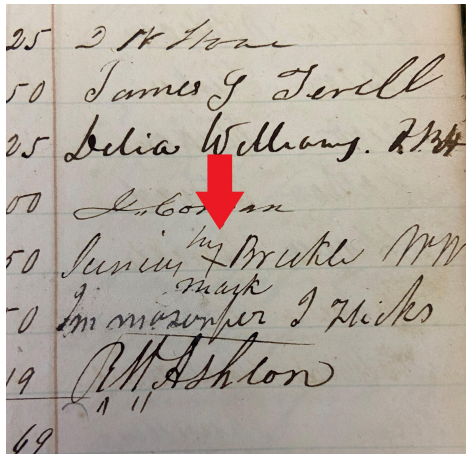 25 D H Stone
50 James G Terell
25 Delia Williams.
00
50 Junius his X Brickle WW
mark
50 Jm mason per J Hicks
19 R W Ashton
69